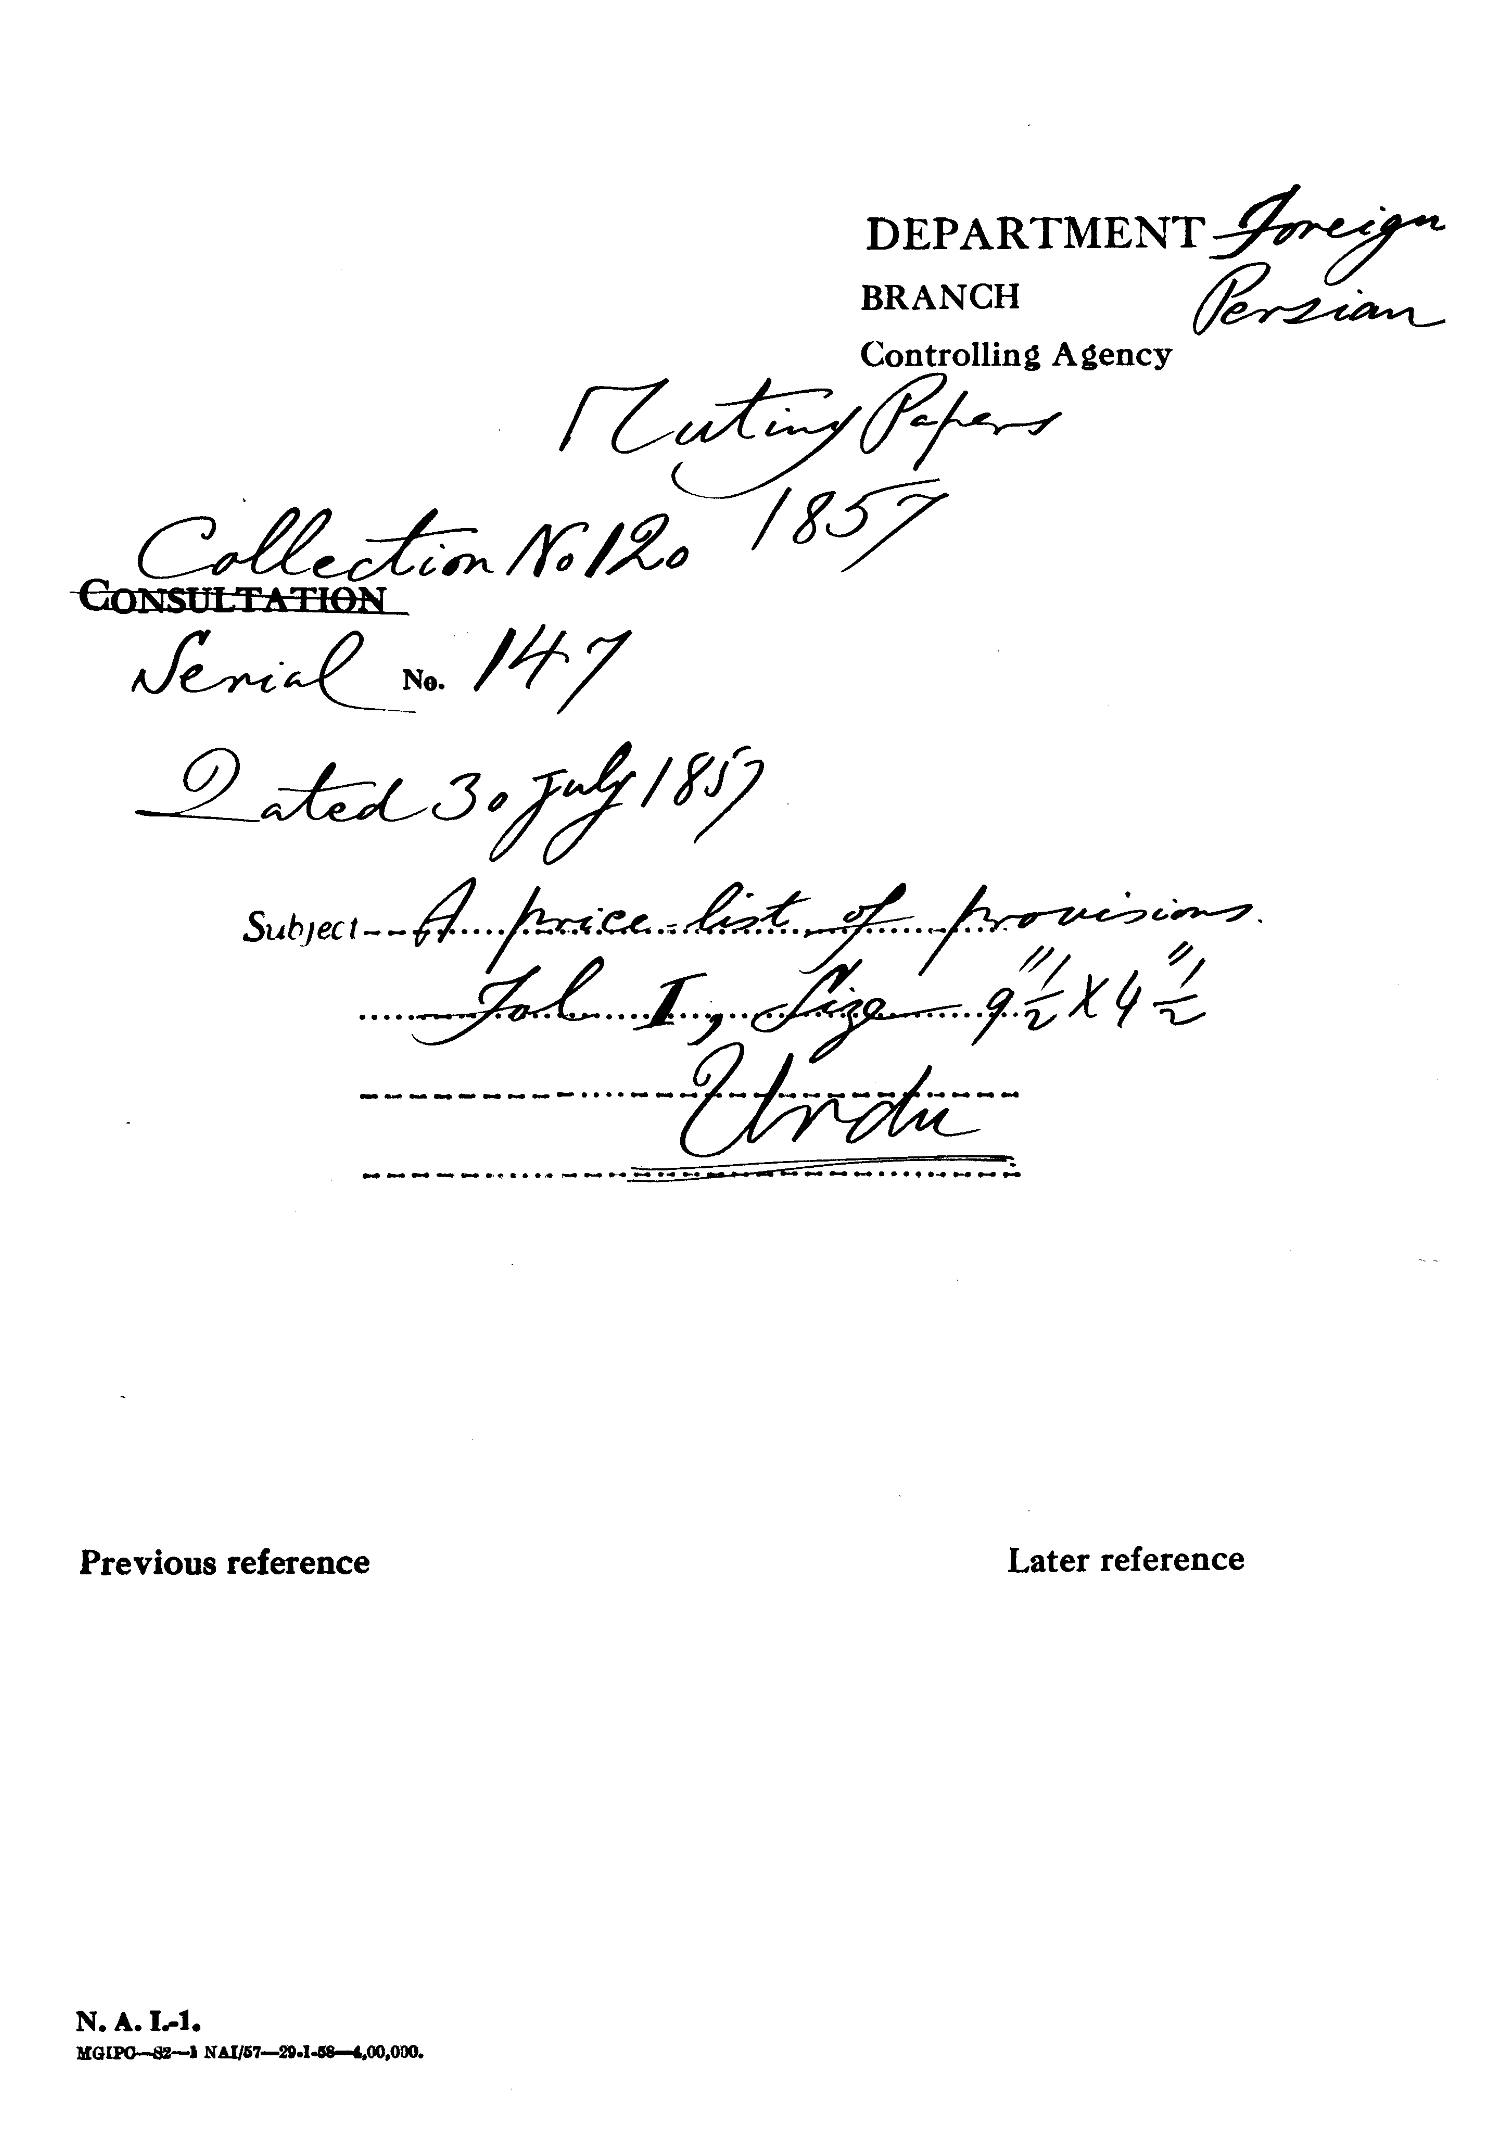 DEPARTMENT Foreign
BRANCH Persian
Controlling Agency
Mutiny Papers
1857
Collection No 120
CONSULTATION
Serial No. 147
Dated 30 July 1857
Subject A price list of provisions.
Fol I, Size 9"1/2 X 4"1/2
Urdu
Previous reference Later reference
N. A. I.-1.
MGIPC—S2—1 NAI/57—29-1-58—4,00,000.